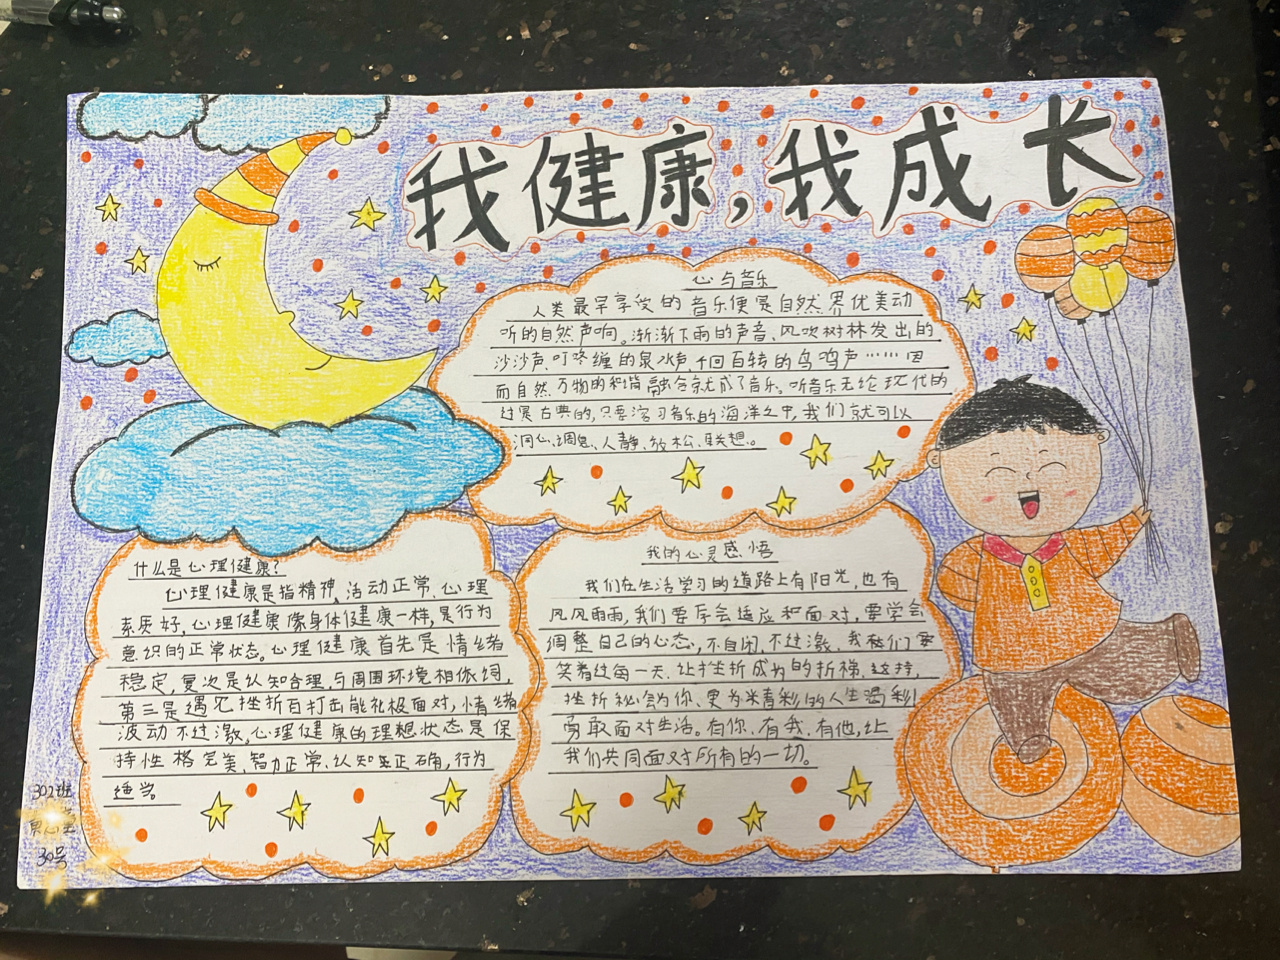 我健康，我成长
心与音乐
人类最早享受的音乐便是自然界优美动
听的自然声响。渐渐下雨的声音、风吹树林发出的
沙沙声、叮咚缠的泉水声、千回百转的鸟鸣声……因
而自然万物的和谐融合就成了音乐。听音乐无论现代的
过是古典的,只要容习音乐的海洋之中,我们就可以
洞心、调息、人静、放松、联想。。
什么是心理健康?
心理健康是指精神、活动正常、心理
素质好,心理健康像身体健康一样,是行为
意识的正常状态。心理健康首先是情绪
稳定,复次是认知合理,与周围环境相依
第三是遇见挫折百打击能礼极面对,情绪
波动不过激,心理健康的理想状态是保
持性格完美、智力正常、认知正确,行为
适当。
我的心灵感悟
我们在生活学习的道路上有阳光,也有
风风雨雨,我们要学会适应和面对,要学会
调整自己的心态,不自闭,不过激,我们要
笑着过每一天,让挫折成为的折梯,这持,
挫折会为你、更为精彩的人生喝彩!
勇敢面对生活。有你、有我、有他,让
我们共同面对所有的一切。
302班
30号